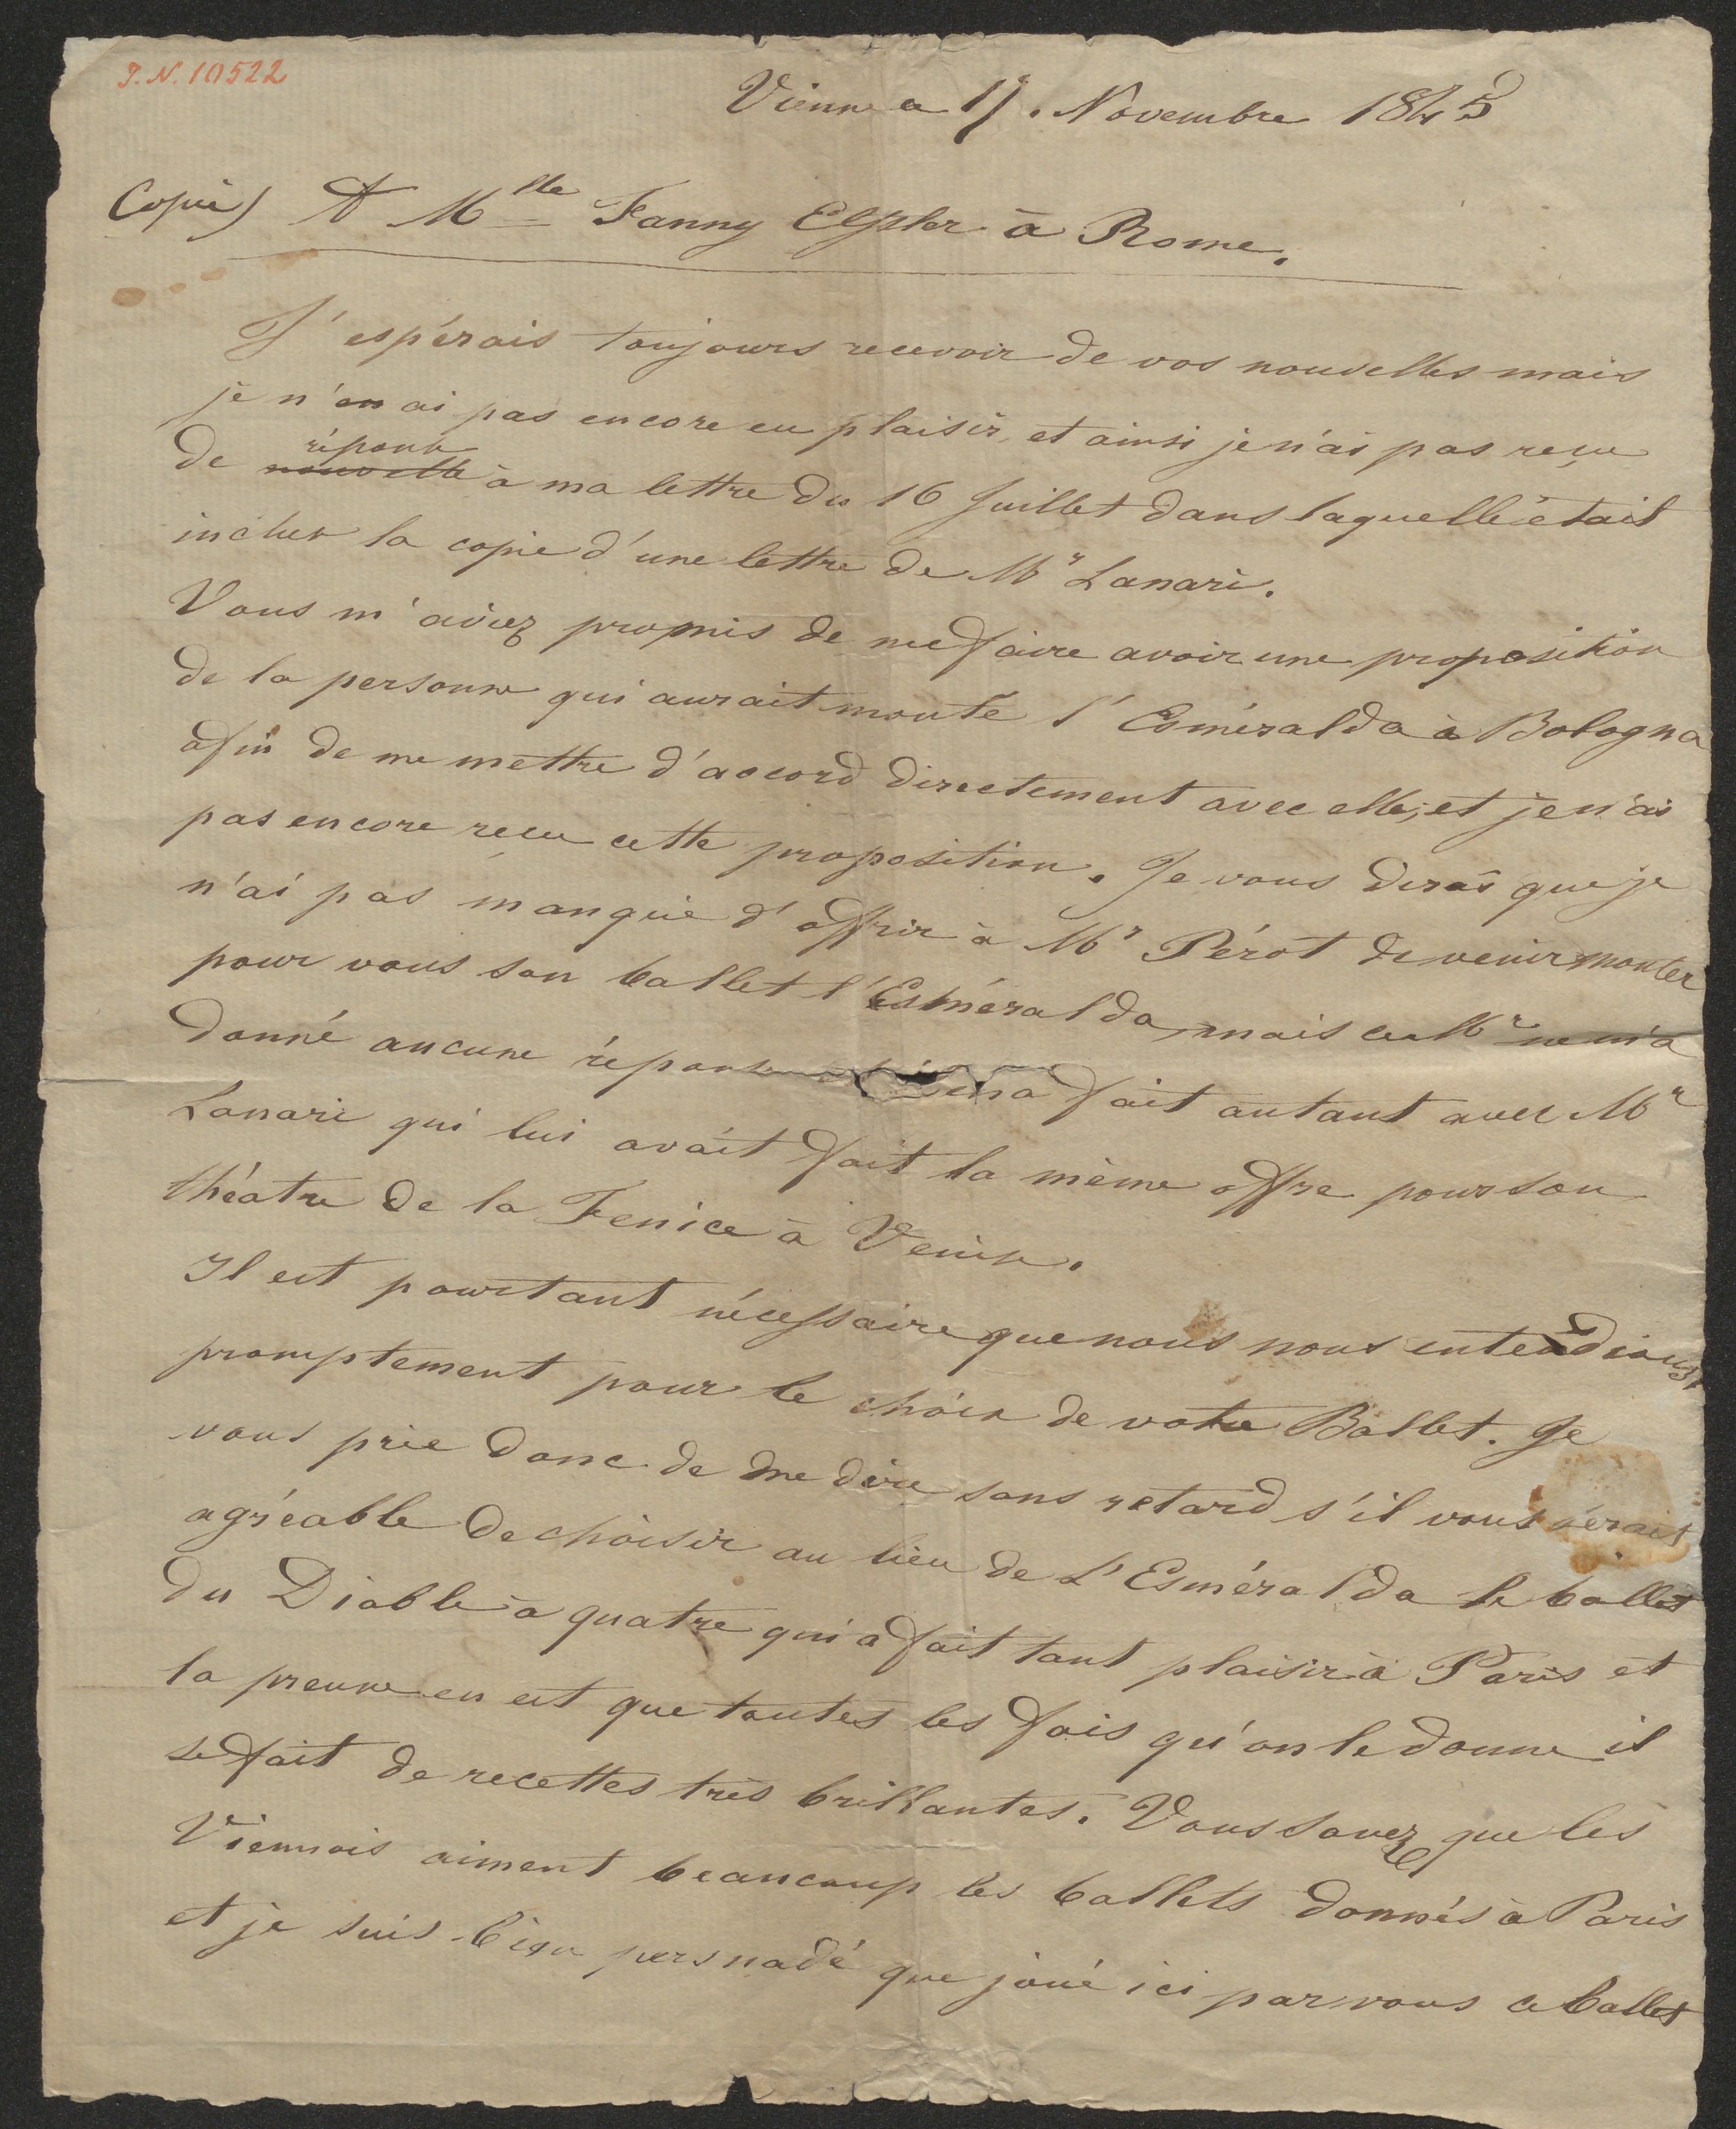 J.N. 10522
Vienne a 17. Novembre 1845
Copie) A Mlle Fanny Elssler à Rome.
J'espérais toujours recevoir de vos nouvelles mais
je n'en ai pas encore eu plaisir, et ainsi je n'ai pas reçu
réponse
de nouvelle à ma lettre du 16 Juillet dans laquelle était
incluse la copie d'une lettre de Mr Lanari.
Vous m'aviez promis de me faire avoir une proposition
de la personne qui aurait monté l'Esméralda à Bologna
afin de me mettre d'accord directement avec elle, et je n'ai
pas encore reçu cette proposition. Je vous dirai que je
n'ai pas manqué d'offrir à Mr Pérot de venir monter
pour vous son ballet l'Esméralda mais ce Mr ne m'a
donné aucune réponse fait autant avec Mr
Lanari qui lui avait fait la même offre pour son
théatre de la Fenice à Venise.
Il est pourtant nécessaire que nous nous entendions
promptement pour le choix de votre Ballet. Je
vous prie donc de me dire sans retard s'il vous sérait
agréable de choisir au lieu de L'Esméralda le ballet
du Diable à quatre qui a fait tant plaisir à Paris et
la preuve en est que toutes les fois qu'on le donne il
se fait de recettes très brillantes. Vous savez que les
Viennois aiment beaucoup les ballets donnés à Paris
et je suis bien persuadé que joué ici par vous ce ballet